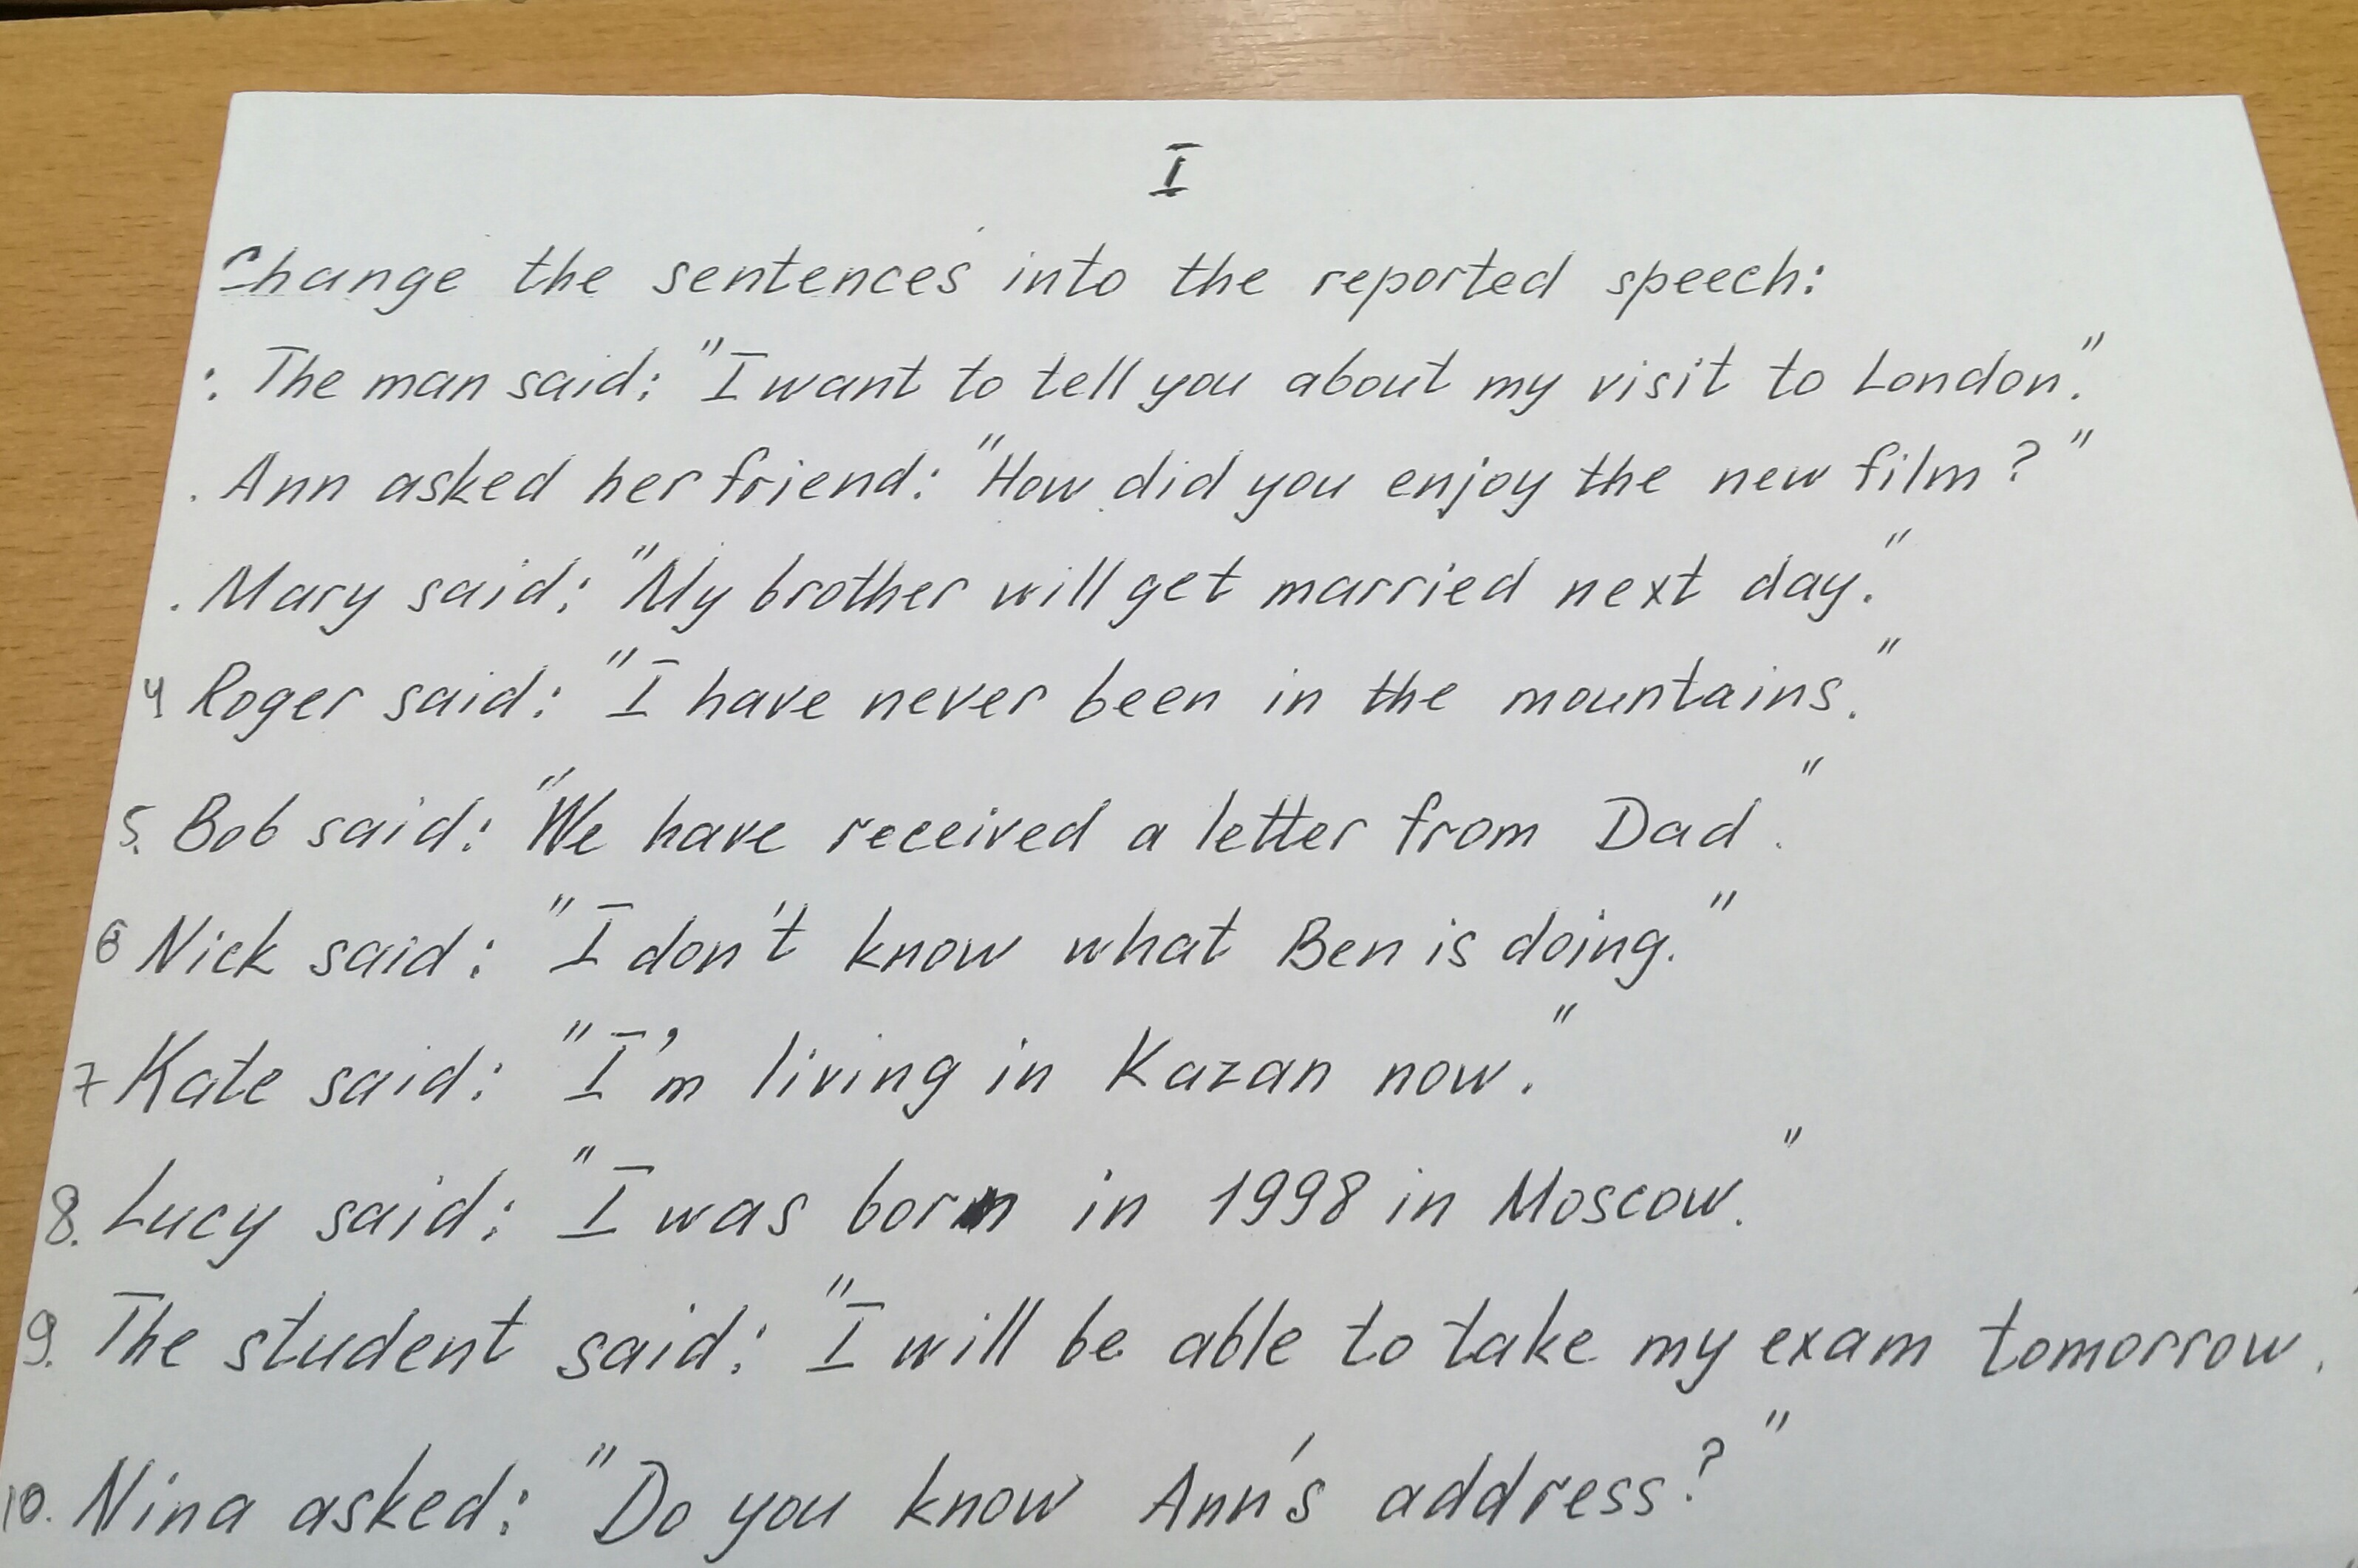 I
Change the sentences into the reported speech:
. The man said: "I want to tell you about my visit to London."
. Ann asked her friend: "How did you enjoy the new film?"
. Mary said: "My brother will get married next day."
4 Roger said: "I have never been in the mountains."
5. Bob said: "We have received a letter from Dad."
6 Nick said: "I don't know what Ben is doing."
7 Kate said: "I'm living in Kazan now."
8. Lucy said: "I was born in 1998 in Moscow."
9. The student said: "I will be able to take my exam tomorrow.
10. Nina asked: "Do you know Ann's address?"